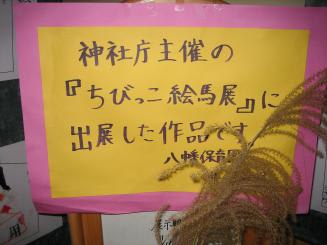 神社庁主催の
『ちびっこ絵馬展』に
出展した作品です
八幡保育園
展示